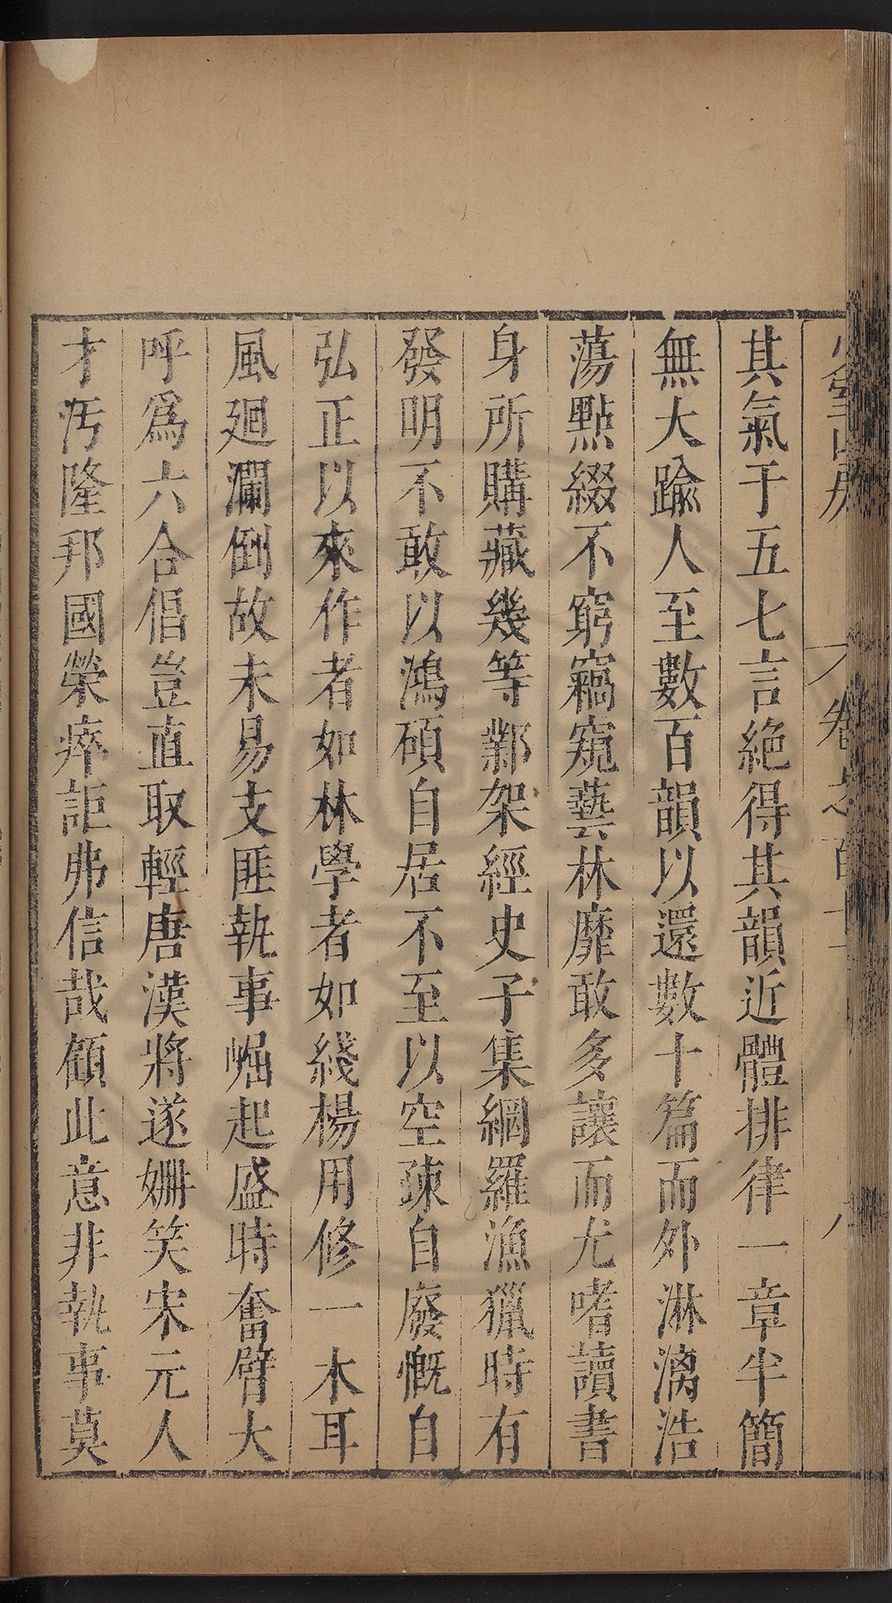 卷之百十
八
其氣于五七言絕得其韻近體排律一章半簡
無大踰人至數百韻以還數十篇而外淋漓浩
蕩點綴不窮竊窺藝林靡敢多讓而尤嗜讀書
身所購藏幾等鄴架經史子集網羅漁獵時有
發明不敢以鴻碩自居不至以空疎自廢慨自
弘正以來作者如林學者如綫楊用修一木耳
風廻瀾倒故未易支匪執事崛起盛時奮臂大
呼爲六合倡豈直取輕唐漢將遂姍笑宋元人
才污隆邦國榮瘁詎弗信哉顧此意非執事莫